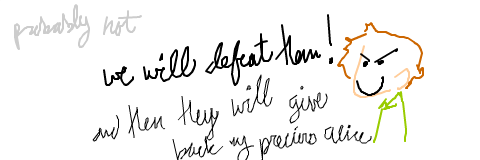 probably not
we will defeat them!
and then they will give
back my precious alice